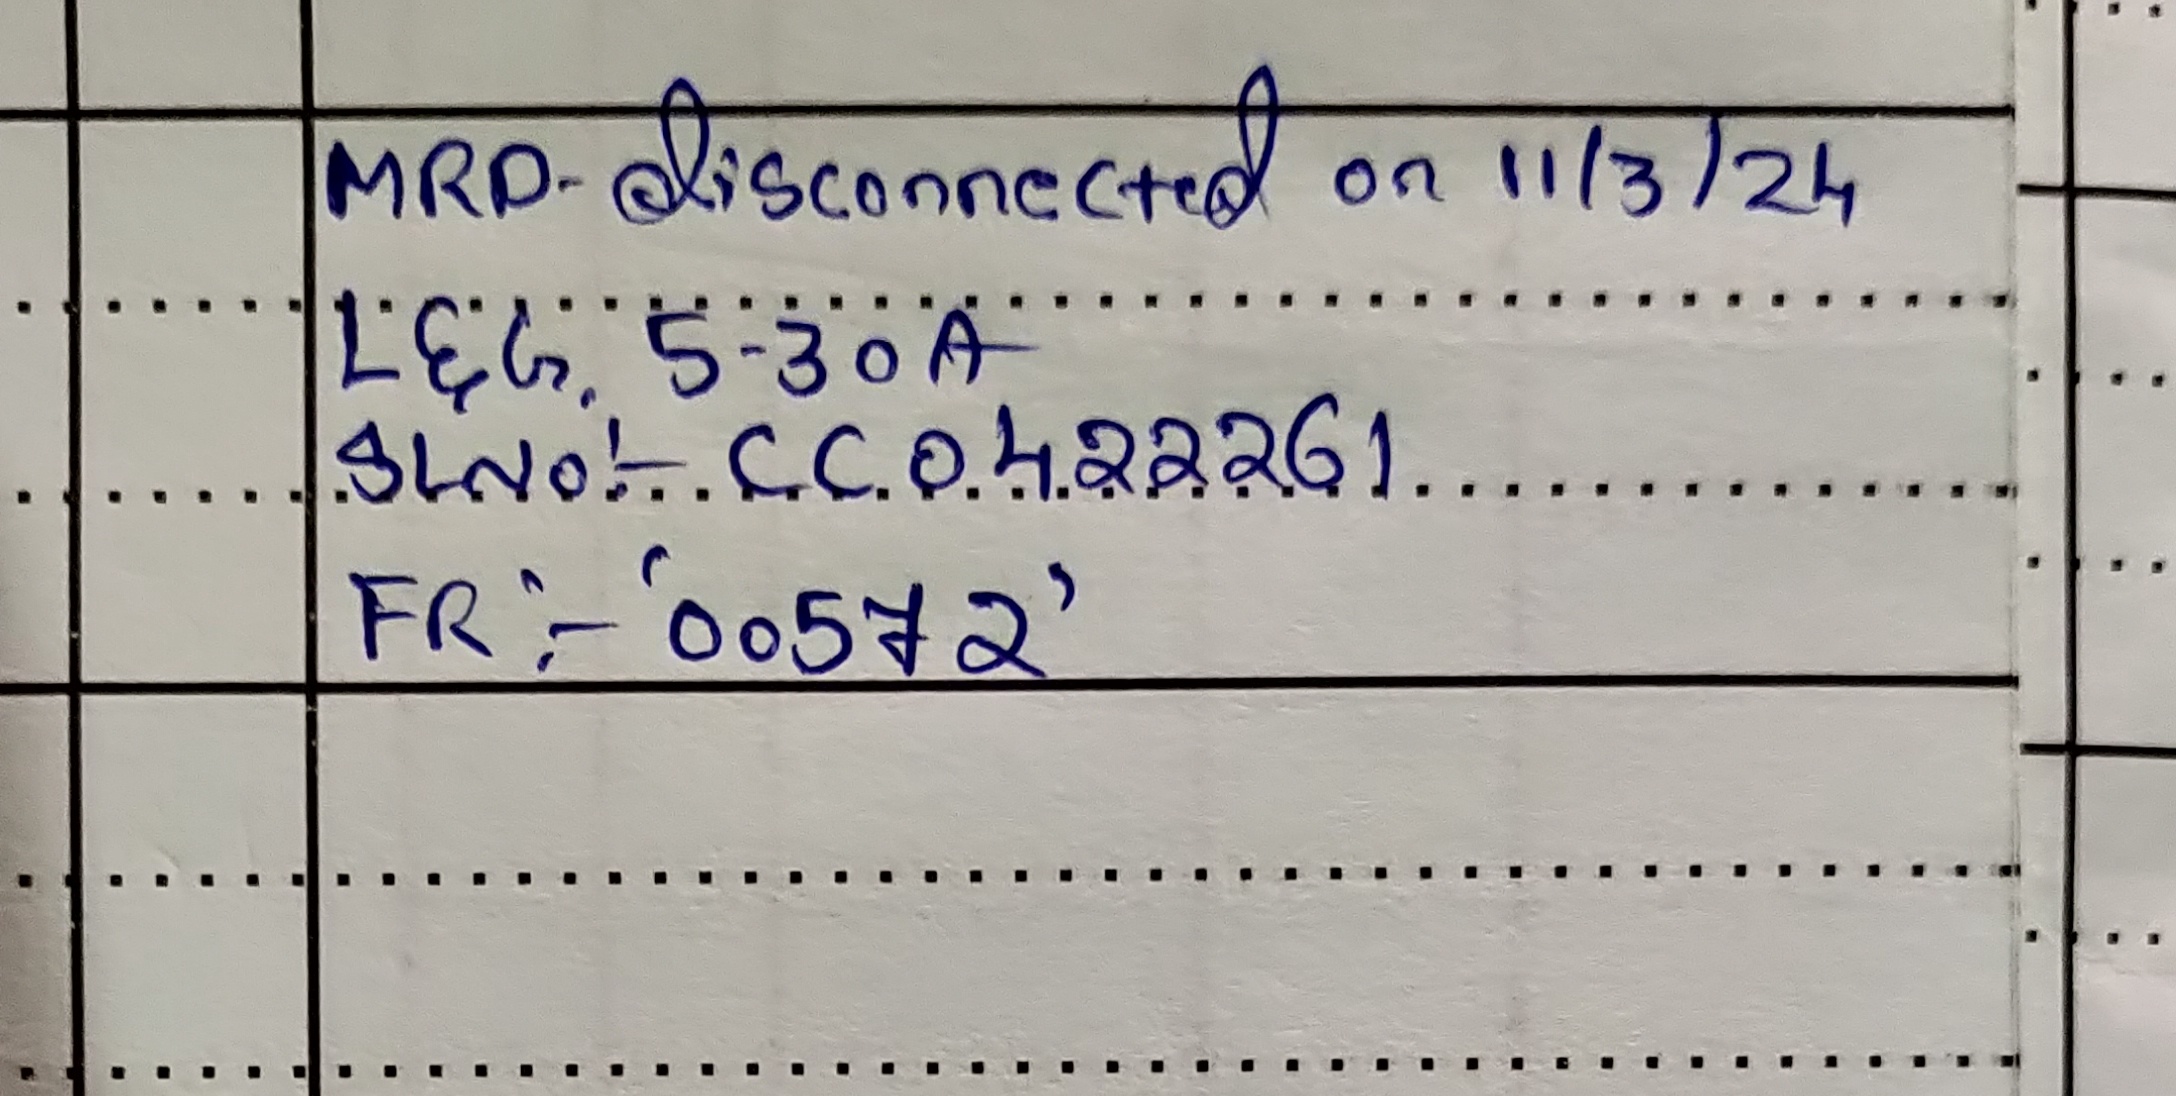 MRD- disconnected on 11/3/24
L&G, 5-30A
SLNO:- CC0422261
FR:- '00572'